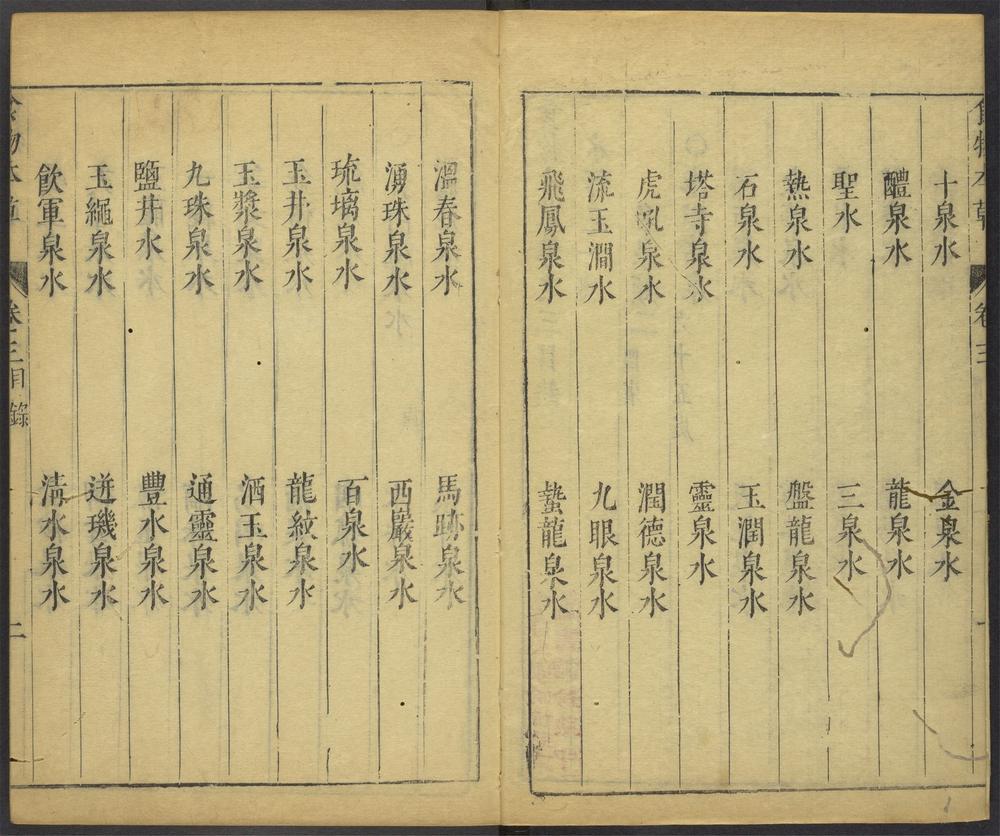 食物本草 卷三
十泉水 金泉水
醴泉水 龍泉水
聖水 三泉水
熱泉水 盤龍泉水
石泉水 玉潤泉水
塔寺泉水 靈泉水
虎泉水 潤德泉水
流玉澗水 九眼泉水
飛鳳泉水 蟄龍泉水
溫春泉水 馬跡泉水
湧珠泉水 西巖泉水
琉璃泉水 百泉水
玉井泉水 龍紋泉水
玉漿泉水 酒玉泉水
九珠泉水 通靈泉水
鹽井水 豐水泉水
玉繩泉水 迸璣泉水
飲軍泉水 清水泉水
卷三目錄 二